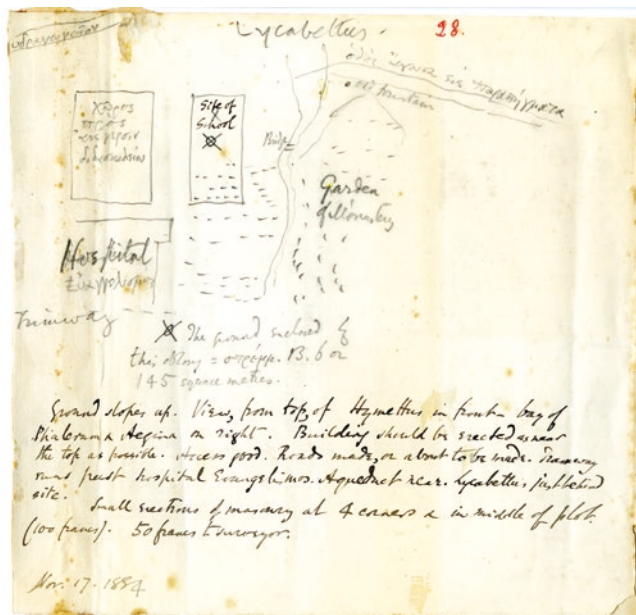 Lycabettus.
28.
ὁδὸς
εἰς
old fountain
Χῶρος
πρὸς
Site of
School
Bridge
Garden
of Monastery
Hospital
Tramway
The ground enclosed by
this oblong =
145 square metres.
Ground slopes up. View, from top, of Hymettus in front - bay of
Phalerum & Aegina on right. Building should be erected as near
the top as possible. Access good. Roads made, or about to be made. Tramway
runs past hospital Evangelismos. Aqueduct near. Lycabettus just behind
site.
Small erections of masonry at 4 corners & in middle of plot.
(100 francs). 50 francs to surveyor.
Nov. 17. 1884